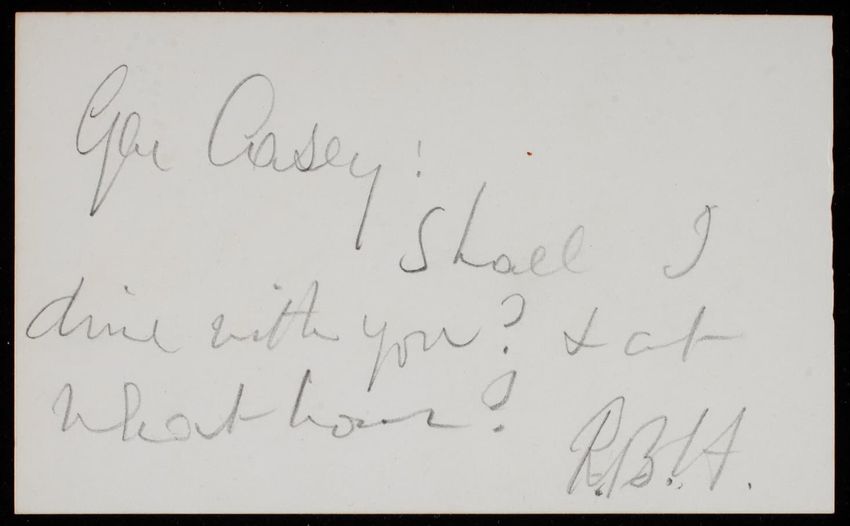 Gen Casey:
Shall I
dine with you? & at
what hour?
R.B.H.